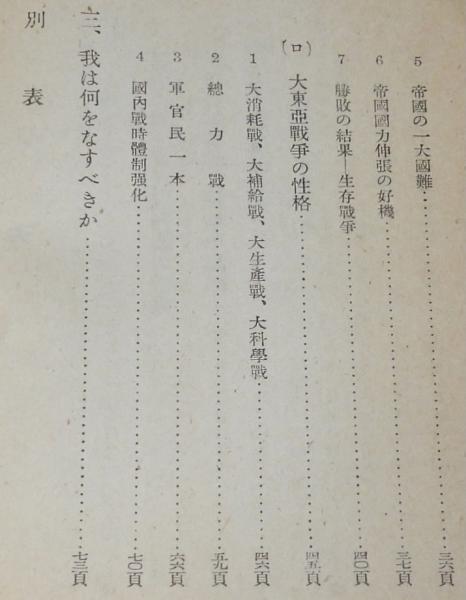 5 帝國の一大國難……三六頁
6 帝國國力伸張の好機……三七頁
7 勝敗の結果―生存戰爭……四〇頁
(ロ) 大東亞戰爭の性格……四五頁
1 大消耗戰、大補給戰、大生產戰、大科學戰……四六頁
2 總力戰……五九頁
3 軍官民一本……六六頁
4 國內戰時體制强化……七〇頁
三、我は何をなすべきか……七三頁
別表